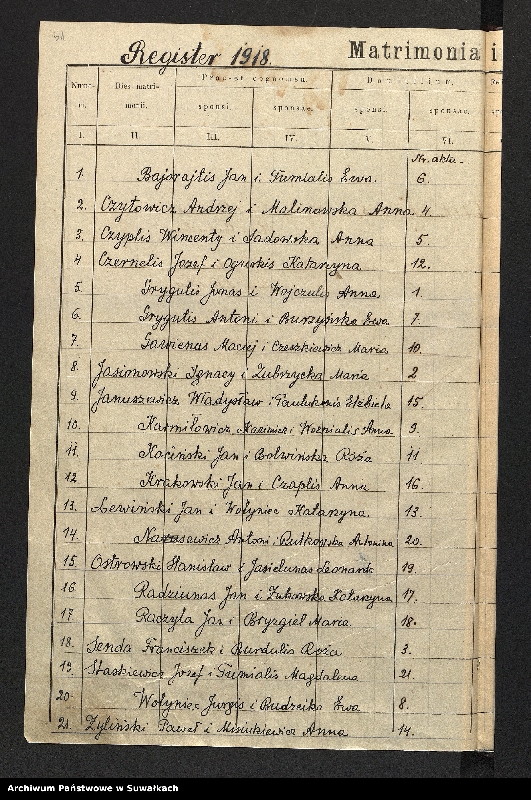 Register 1918. Matrimonia i
Dies matri- Domicilium.
monii. sponsi. sponsae. sponsi. sponsae.
I. II. III. IV. V. VI.
Nr. akta.
1. Bajorajtis Jan i Tumialis Ewa. 6.
2. Czytowicz Andrzej i Malinowska Anna 4.
3. Czyplis Wincenty i Sadowska Anna 5.
4 Czernelis Jozef i Ogurkis Katarzyna 12.
5. Grygulis Junas i Wojczulis Anna 1.
6. Grygutis Antoni i Burzyńska Ewa 7.
7. Jawienas Maciej i Czeszkiewicz Maria 10.
8. Jasionowski Ignacy i Zubrzycka Maria 2
9. Januszewicz Władysław i Paulukonis Elżbieta 15.
10. Karmiłowicz Kazimierz i Woznialis Anna 9.
11. Kociński Jan i Bolwińska Roża 11
12 Krakowski Jan i Czaplis Anna 16.
13. Lewiński Jan i Wołyniec Katarzyna. 13.
14. Naruszewicz Antoni i Rutkowska Antonina 20.
15. Ostrowski Stanisław i Jasielunas Leonarda 19.
16 Radziunas Jan i Żukowska Katarzyna 17.
17 Raczyla Jan i Bryzgiel Maria 18.
18. Senda Franciszek i Burdulia Roża 3.
19. Staskiewicz Jozef i Tumialis Magdalena 21.
20 Wołyniec Jurgis i Budzeika Ewa 8.
21. Żyliński Paweł i Misiukiewicz Anna 14.
Archiwum Państwowe w Suwałkach